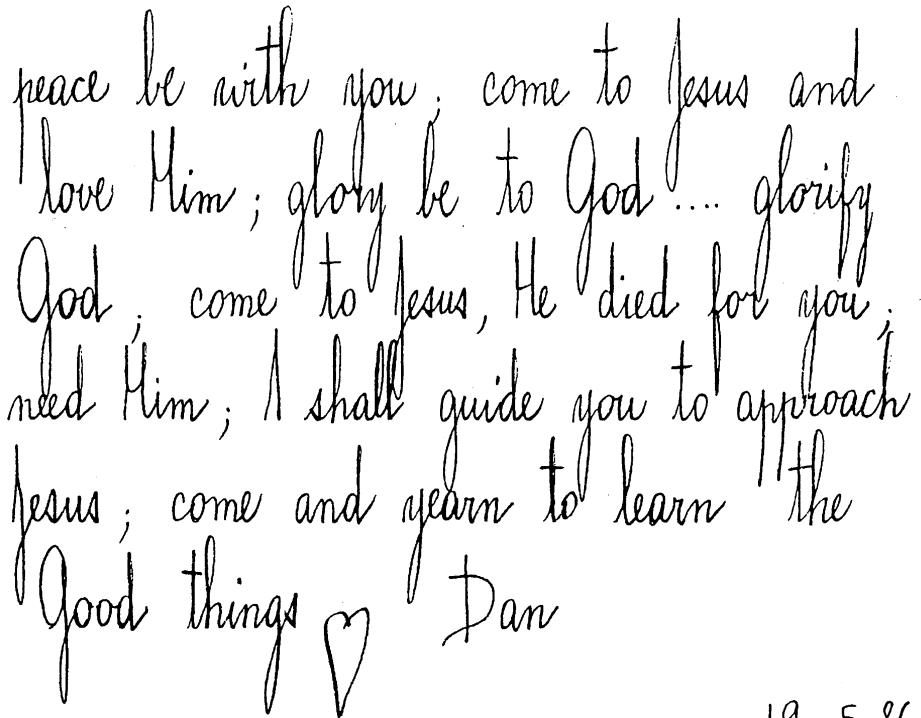 peace be with you ; come to Jesus and
love Him ; glory be to God .... glorify
God ; come to Jesus, He died for you ;
need Him ; I shall guide you to approach
Jesus ; come and yearn to learn the
Good things ♡ Dan